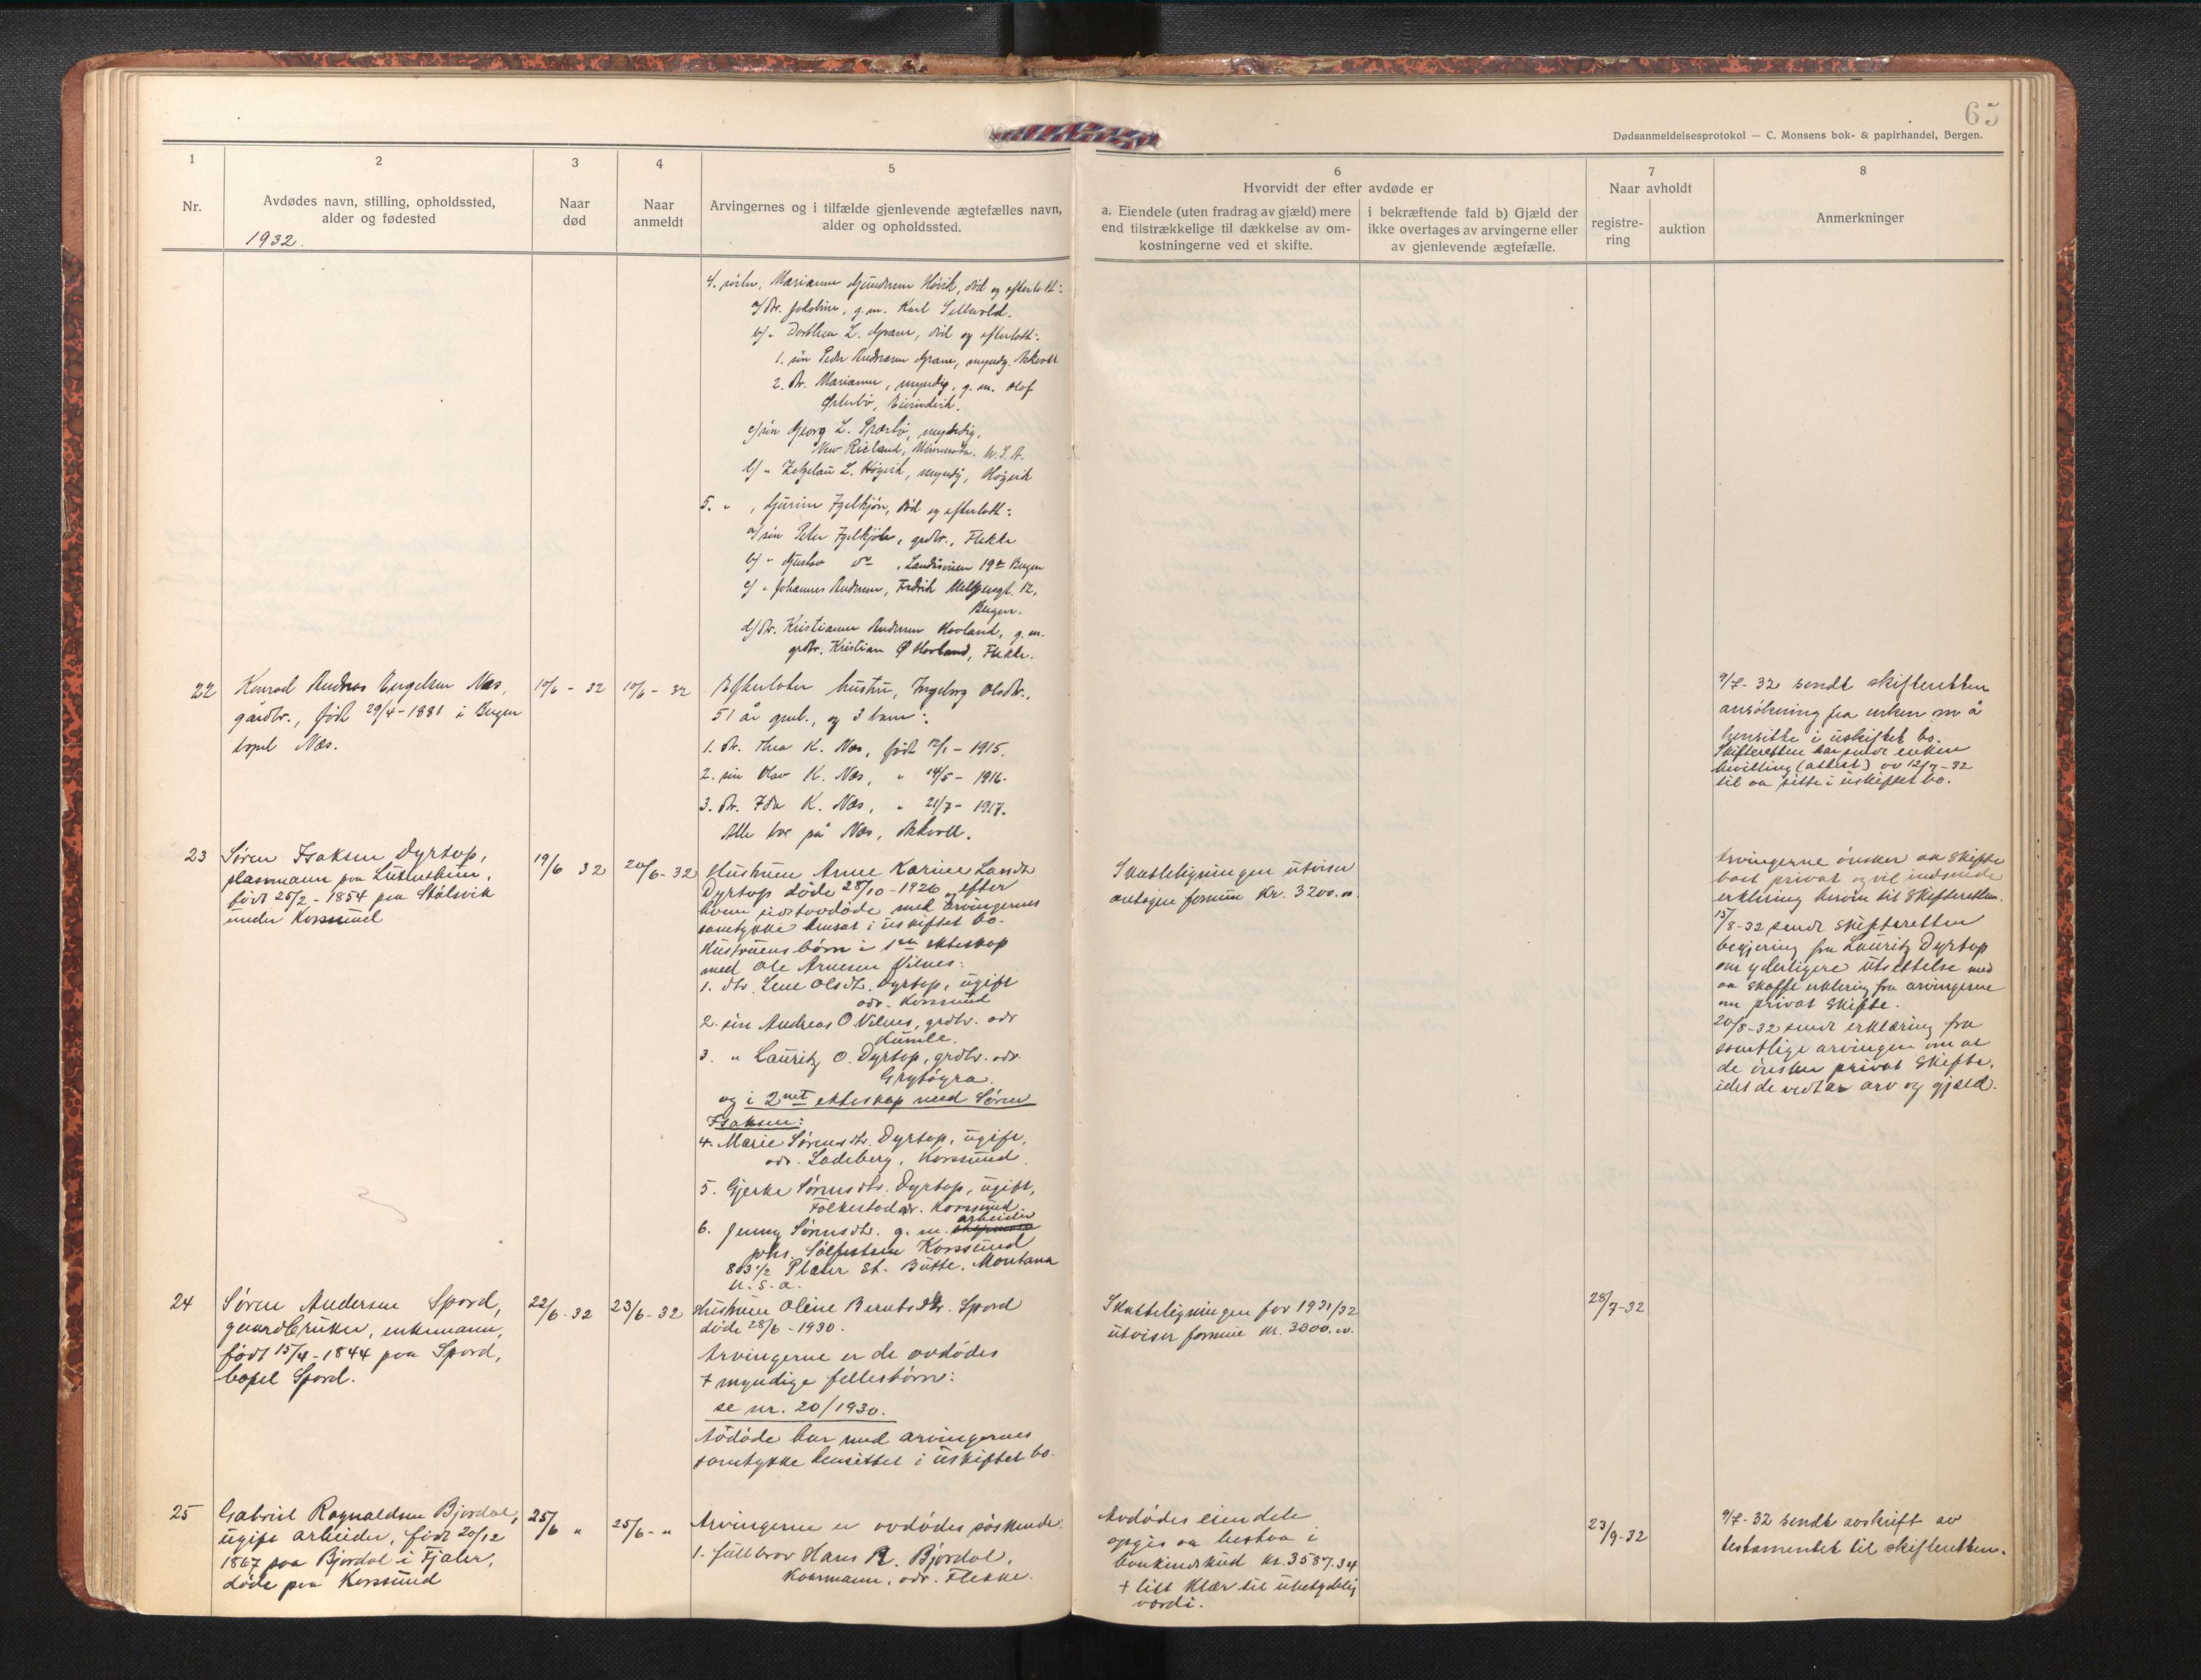 65
Dødsanmeldelsesprotokol — C. Monsens bok- & papirhandel, Bergen.
1
2
3
4
5
6
7
8
Nr.
Avdødes navn, stilling, opholdssted,
alder og fødested
Naar
død
Naar
anmeldt
Arvingernes og i tilfælde gjenlevende ægtefælles navn,
alder og opholdssted.
Hvorvidt der efter avdøde er
a. Eiendele (uten fradrag av gjæld) mere
end tilstrækkelige til dækkelse av om-
kostningerne ved et skifte.
i bekræftende fald b) Gjæld der
ikke overtages av arvingerne eller
av gjenlevende ægtefælle.
Naar avholdt
registre-
ring
auktion
Anmerkninger
1932.
4. søster, Marianne Gundersen Høivik, død og efterlott:
a) dtr. Jakobine, g.m. Karl Sellevold.
b) " Dorthea L. Grane, død og efterlott:
1. søn Peder Andreasen Grane, myndig, Askvoll
2. dtr. Marianne, myndig, g.m. Olaf
Østerbø, Eivindvik.
c) søn Georg L. myndig,
New Richland, Minnesota. U.S.A.
d) " L. Høyvik, myndig, Høyvik
5. " , Gurine Igelkjøn, død og efterlott:
a) søn Peter Igelkjøn, grdbr., Flekke
b) " Gustav do , 19a Bergen
c) " Johannes Andersen, Fredrik Meltzersgt. 12,
Bergen.
d) dtr. Kristianne Andersen Hovland, g.m.
grdbr. Kristian Ø Hovland, Flekke.
22
Konrad Andreas Engelsen Næs,
gårdbr., født 29/4-1881 i Bergen
bopel Næs.
10/6 - 32
10/6 - 32
Efterlater hustru, Ingeborg Olsdtr.,
51 år gml., og 3 barn:
1. dtr. Thea K. Næs, født 12/1 - 1915.
2. søn Olav K. Næs, " 14/5 - 1916.
3. dtr. Ida K. Næs, " 21/7 - 1917.
Alle bor på Næs, Askvoll.
9/7-32 sendt skifteretten
ansökning fra enken om å
hensitte i uskiftet bo.
Skifteretten har sendt enken
bevilling (attest) av 12/7-32
til aa sitte i uskiftet bo.
23
Søren Isaksen Dyrtop,
plassmann paa
født 25/2-1854 paa Stölsvik
under Korssund
19/6 32
20/6-32
Hustruen Anne Karine Larsdtr
Dyrtop døde 28/10-1926, efter
hvem sidstavdøde med arvingernes
samtykke hensat i uskiftet bo.
Hustruens børn i 1ste ekteskap
med Ole Arnesen Vilnes:
1. dtr. Lene Olsdtr. Dyrtop, ugift
adr. Korssund
2. søn Andreas O Vilnes, grdbr. adr
Humle.
3. " Lauritz O. Dyrtop, grdbr. adr.
Grytøyra.
og i 2net ekteskap med Søren
Isaksen:
4. Marie Sørensdtr. Dyrtop, ugift,
adr. Ladeberg, Korssund.
5. Gjerke Sørensdtr. Dyrtop, ugift,
Folkestad adr. Korssund
6. Jenny Sørensdtr. g.m. arbeider
Johs. Salfestsen Korssund
803 1/2 St. Butte, Montana
U.S.A.
Skatteligningen utviser
antagen formue kr. 3200.00
Arvingerne ønsker aa skifte
boet privat og vil indsende
erklæring herom til Skifteretten.
15/8-32 sendt skifteretten
begjæring fra Lauritz Dyrtop
om yderligere utsettelse med
aa skaffe erklæring fra arvingerne
om privat skifte.
20/8-32 sendt erklæring fra
samtlige arvinger om at
de ønsker privat skifte,
idet de vedtar arv og gjæld.
24
Søren Andersen Spord,
gaardbruker, enkemann,
født 15/4-1844 paa Spord,
bopel Spord.
22/6-32
23/6-32
Hustruen Oline Berntsdtr. Spord
døde 28/6-1930.
Arvingerne er de avdødes
7 myndige fellesbørn:
se nr. 20/1930.
Avdøde har med arvingernes
samtykke hensittet i uskiftet bo.
Skatteligningen for 1931/32
utviser formue kr. 3000.00.
28/7-32
25
Gabriel Ragnaldsen Bjordal,
ugift arbeider, født 20/12
1867 paa Bjordal i Fjaler,
døde paa Korssund
25/6 "
25/6-"
Arvingerne er avdødes søskende.
1. fullbror Hans R. Bjordal,
kaarmann, adr. Flekke.
Avdødes eiendele
opgis aa bestaa i
bankindskud kr. 3587.34
+ litt klær til ubetydelig
værdi.
23/9-32
9/7-32 sendt avskrift av
testamentet til skifteretten.